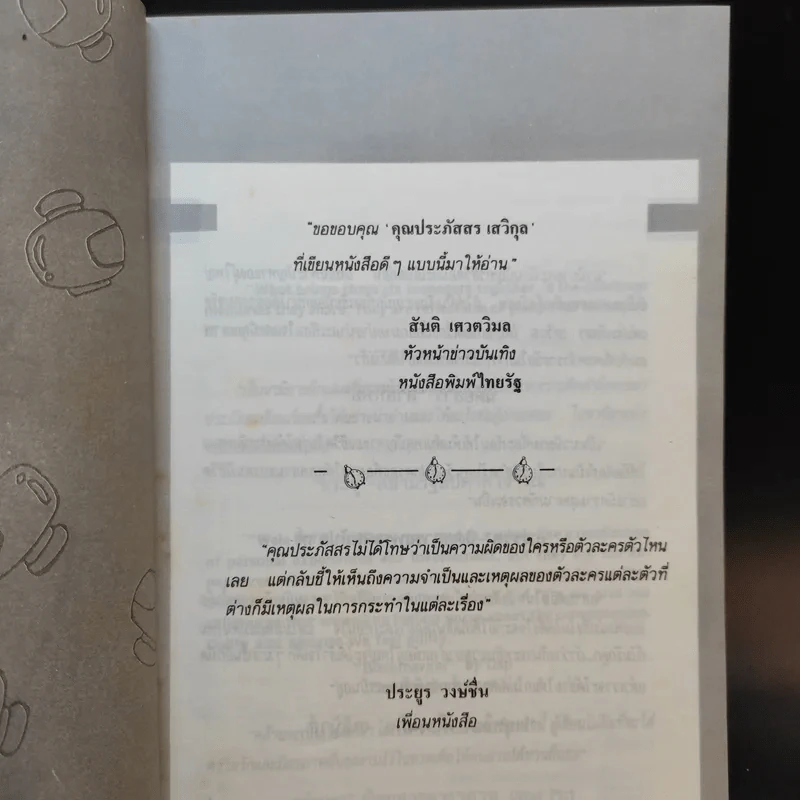 "ขอขอบคุณ 'คุณประภัสสร เสวิกุล'
ที่เขียนหนังสือดี ๆ แบบนี้มาให้อ่าน"
สันติ เศวตวิมล
หัวหน้าข่าวบันเทิง
หนังสือพิมพ์ไทยรัฐ
"คุณประภัสสรไม่ได้โทษว่าเป็นความผิดของใครหรือตัวละครตัวไหน
เลย แต่กลับชี้ให้เห็นถึงความจำเป็นและเหตุผลของตัวละครแต่ละตัวที่
ต่างก็มีเหตุผลในการกระทำในแต่ละเรื่อง"
ประยูร วงษ์ชื่น
เพื่อนหนังสือ